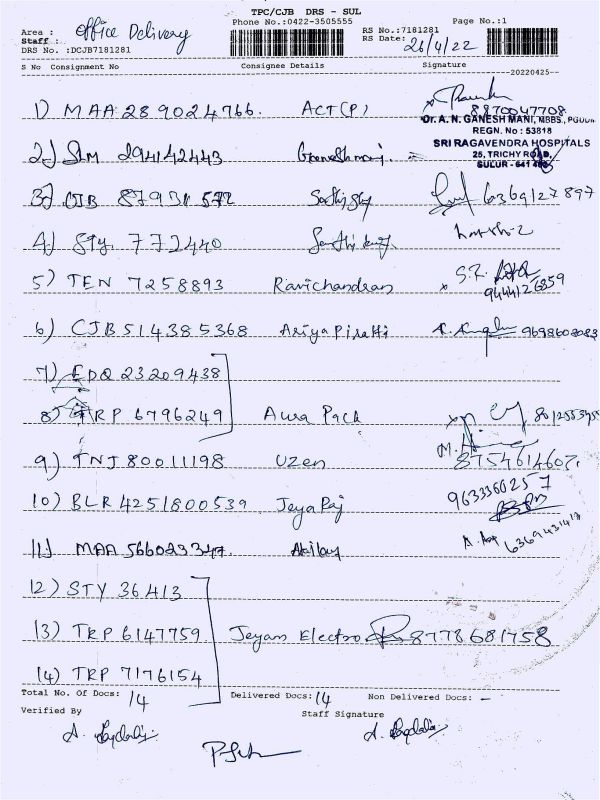 TPC/CJB DRS - SUL
Phone No.:0422-3505555 Page No.:1
Area : Office Delivery
Staff :
DRS No. :DCJB7181281
RS No.:7181281
RS Date: 26/4/22
S No Consignment No Consignee Details Signature
20220425
1) MAA 289024766. ACT(P)
8870047708
Dr. A. N. GANESH MANI, MBBS.,
REGN. No : 53818
SRI RAGAVENDRA HOSPITALS
25, TRICHY ROAD,
SULUR - 641
2) SLM 294142443 Ganeshmani.
3) CJB 87931572 6369127897
4) STY. 772440
5) TEN 7258893 Ravichandran
9444126859
6) CJB514385368 Ariya Pirathi 9698602083
7) EDQ 23209438
8) TRP 6796249 Aura Pack
9) TNJ 80011198 Uzen 8754614607.
10) BLR 4251800539 JeyaRaj 9633360257
11) MAA 566023347. 6369431417
12) STY 36413
13) TRP 6147759 Jeyam Electro 8778681758
14) TRP 7176154
Total No. Of Docs: 14 Delivered Docs:14 Non Delivered Docs: -
Verified By Staff Signature